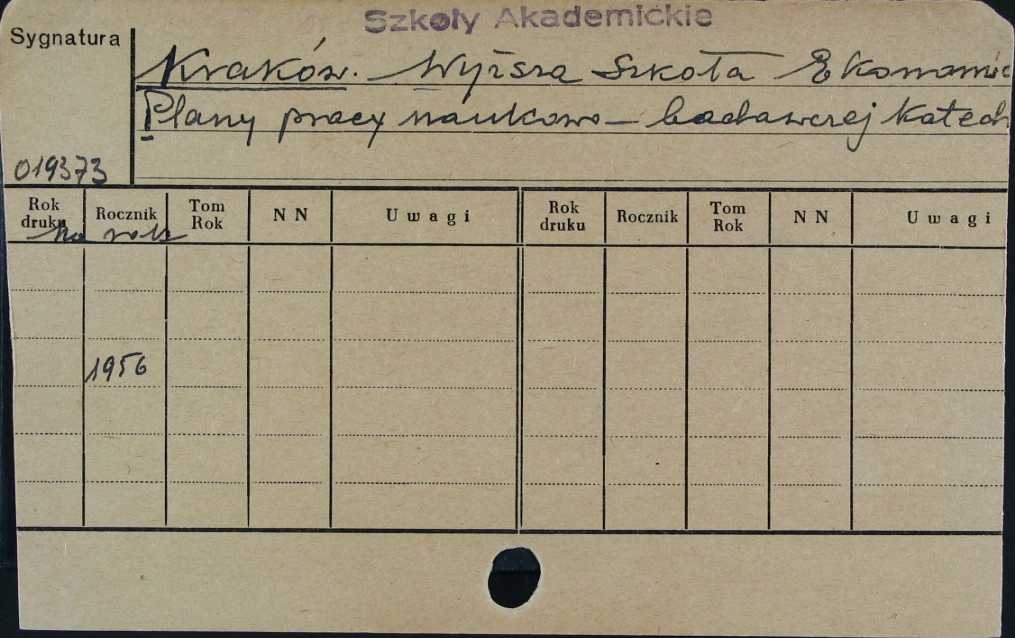 Szkoły Akademickie
Sygnatura
Kraków. Wyższa Szkoła Ekonomic
Plany pracy naukowo-badawczej Katedr
019373
Rok druku Rocznik Tom Rok NN Uwagi Rok druku Rocznik Tom Rok NN Uwagi
na rok
1956